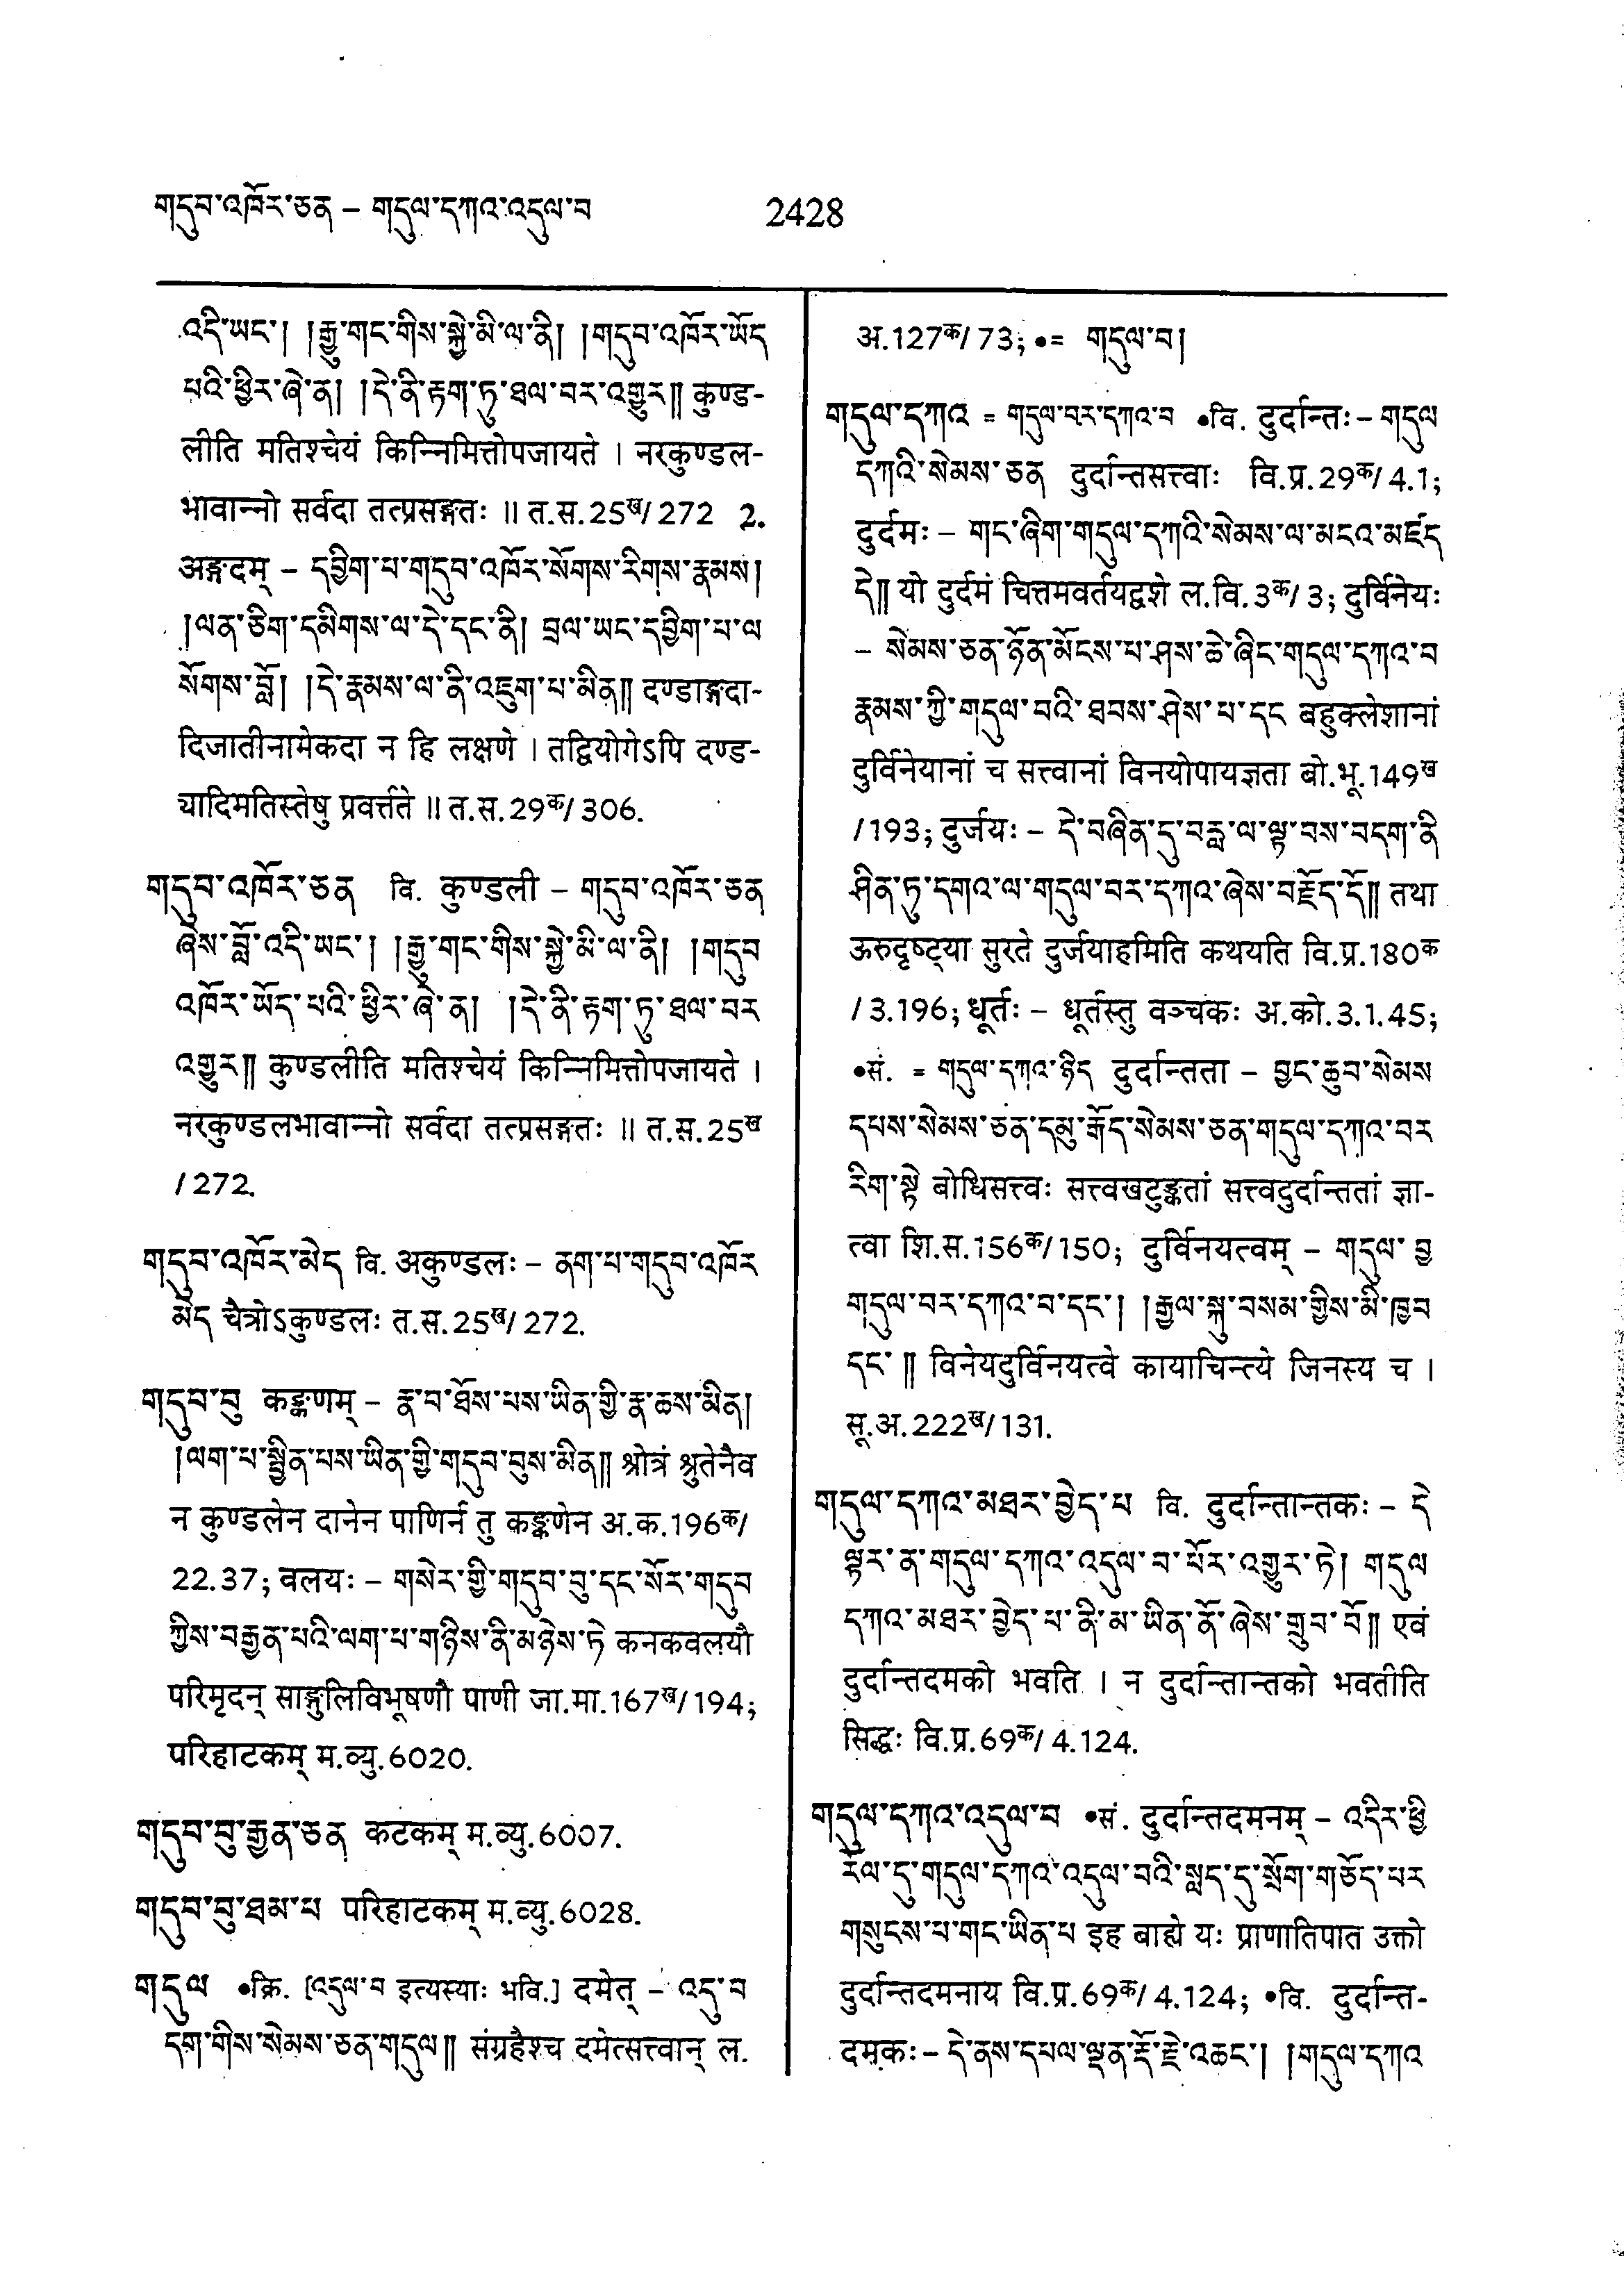 གདུབ་འཁོར་ཅན – གདུལ་དཀའ་འདུལ་བ
2428
འདི་ཡང་། །རྒྱུ་གང་གིས་སྐྱེ་མི་ལ་ནི། །གདུབ་འཁོར་ཡོད
པའི་ཕྱིར་ཞེ་ན། །དེ་ནི་རྟག་ཏུ་ཐལ་བར་འགྱུར༎ कुण्ड-
लीति मतिश्चेयं किन्निमित्तोपजायते । नरकुण्डल-
भावान्नो सर्वदा तत्प्रसङ्गतः ॥ त.स.25ख/272 2.
अङ्गदम् – དབྱིག་པ་གདུབ་འཁོར་སོགས་རིགས་རྣམས།
།ལན་ཅིག་དམིགས་ལ་དེ་དང་ནི། བྲལ་ཡང་དབྱིག་པ་ལ
སོགས་བློ། །དེ་རྣམས་ལ་ནི་འཇུག་པ་མིན༎ दण्डाङ्गदा-
दिजातीनामेकदा न हि लक्षणे । तद्वियोगेऽपि दण्ड-
घादिमतिस्तेषु प्रवर्त्तते ॥ त.स.29क/306.
གདུབ་འཁོར་ཅན वि. कुण्डली – གདུབ་འཁོར་ཅན
ཞེས་བློ་འདི་ཡང་། །རྒྱུ་གང་གིས་སྐྱེ་མི་ལ་ནི། །གདུབ
འཁོར་ཡོད་པའི་ཕྱིར་ཞེ་ན། །དེ་ནི་རྟག་ཏུ་ཐལ་བར
འགྱུར༎ कुण्डलीति मतिश्चेयं किन्निमित्तोपजायते ।
नरकुण्डलभावान्नो सर्वदा तत्प्रसङ्गतः ॥ त.स.25ख
/272.
གདུབ་འཁོར་མེད वि. अकुण्डलः – ནག་པ་གདུབ་འཁོར
མེད चैत्रोऽकुण्डलः त.स.25ख/272.
གདུབ་བུ कङ्कणम् – རྣ་བ་ཐོས་པས་ཡིན་གྱི་རྣ་ཆས་མིན།
།ལག་པ་སྦྱིན་པས་ཡིན་གྱི་གདུབ་བུས་མིན༎ श्रोत्रं श्रुतेनैव
न कुण्डलेन दानेन पाणिर्न तु कङ्कणेन अ.क.196क/
22.37; वलयः – གསེར་གྱི་གདུབ་བུ་དང་སོར་གདུབ
ཀྱིས་བརྒྱན་པའི་ལག་པ་གཉིས་ནི་མཉེས་ཏེ कनकवलयौ
परिमृदन् साङ्गुलिविभूषणौ पाणी जा.मा.167ख/194;
परिहाटकम् म.व्यु.6020.
གདུབ་བུ་རྒྱན་ཅན कटकम् म.व्यु.6007.
གདུབ་བུ་ཐམ་པ परिहाटकम् म.व्यु.6028.
གདུལ •क्रि. [འདུལ་བ इत्यस्याः भवि.] दमेत् – འདུ་བ
དག་གིས་སེམས་ཅན་གདུལ༎ संग्रहैश्च दमेत्सत्त्वान् ल.
अ.127क/73; •= གདུལ་བ།
གདུལ་དཀའ = གདུལ་བར་དཀའ་བ •वि. दुर्दान्तः – གདུལ
དཀའི་སེམས་ཅན दुर्दान्तसत्त्वाः वि.प्र.29क/4.1;
दुर्दमः – གང་ཞིག་གདུལ་དཀའི་སེམས་ལ་མངའ་མཛད
དེ༎ यो दुर्दमं चित्तमवर्तयद्वशे ल.वि.3क/3; दुर्विनेयः
– སེམས་ཅན་ཉོན་མོངས་པ་ཤས་ཆེ་ཞིང་གདུལ་དཀའ་བ
རྣམས་ཀྱི་གདུལ་བའི་ཐབས་ཤེས་པ་དང बहुक्लेशानां
दुर्विनेयानां च सत्त्वानां विनयोपायज्ञता बो.भू.149ख
/193; दुर्जयः – དེ་བཞིན་དུ་བརླ་ལ་ལྟ་བས་བདག་ནི
ཤིན་ཏུ་དགའ་ལ་གདུལ་བར་དཀའ་ཞེས་བརྗོད་དོ༎ तथा
ऊरुदृष्ट्या सुरते दुर्जयाहमिति कथयति वि.प्र.180क
/3.196; धूर्तः – धूर्तस्तु वञ्चकः अ.को.3.1.45;
•सं. = གདུལ་དཀའ་ཉིད दुर्दान्तता – བྱང་ཆུབ་སེམས
དཔས་སེམས་ཅན་དམུ་རྒོད་སེམས་ཅན་གདུལ་དཀའ་བར
རིག་སྟེ बोधिसत्त्वः सत्त्वखटुङ्कतां सत्त्वदुर्दान्ततां ज्ञा-
त्वा शि.स.156क/150; दुर्विनयत्वम् – གདུལ་ བྱ
གདུལ་བར་དཀའ་བ་དང་། །རྒྱལ་སྐུ་བསམ་གྱིས་མི་ཁྱབ
དང་༎ विनेयदुर्विनयत्वे कायाचिन्त्ये जिनस्य च ।
सू.अ.222ख/131.
གདུལ་དཀའ་མཐར་བྱེད་པ वि. दुर्दान्तान्तकः – དེ
ལྟར་ན་གདུལ་དཀའ་འདུལ་བ་པོར་འགྱུར་ཏེ། གདུལ
དཀའ་མཐར་བྱེད་པ་ནི་མ་ཡིན་ནོ་ཞེས་གྲུབ་བོ༎ एवं
दुर्दान्तदमको भवति । न दुर्दान्तान्तको भवतीति
सिद्धः वि.प्र.69क/4.124.
གདུལ་དཀའ་འདུལ་བ •सं. दुर्दान्तदमनम् – འདིར་ཕྱི
རོལ་དུ་གདུལ་དཀའ་འདུལ་བའི་སླད་དུ་སྲོག་གཅོད་པར
གསུངས་པ་གང་ཡིན་པ इह बाह्ये यः प्राणातिपात उक्तो
दुर्दान्तदमनाय वि.प्र.69क/4.124; •वि. दुर्दान्त-
दमकः – དེ་ནས་དཔལ་ལྡན་རྡོ་རྗེ་འཆང་། །གདུལ་དཀའ